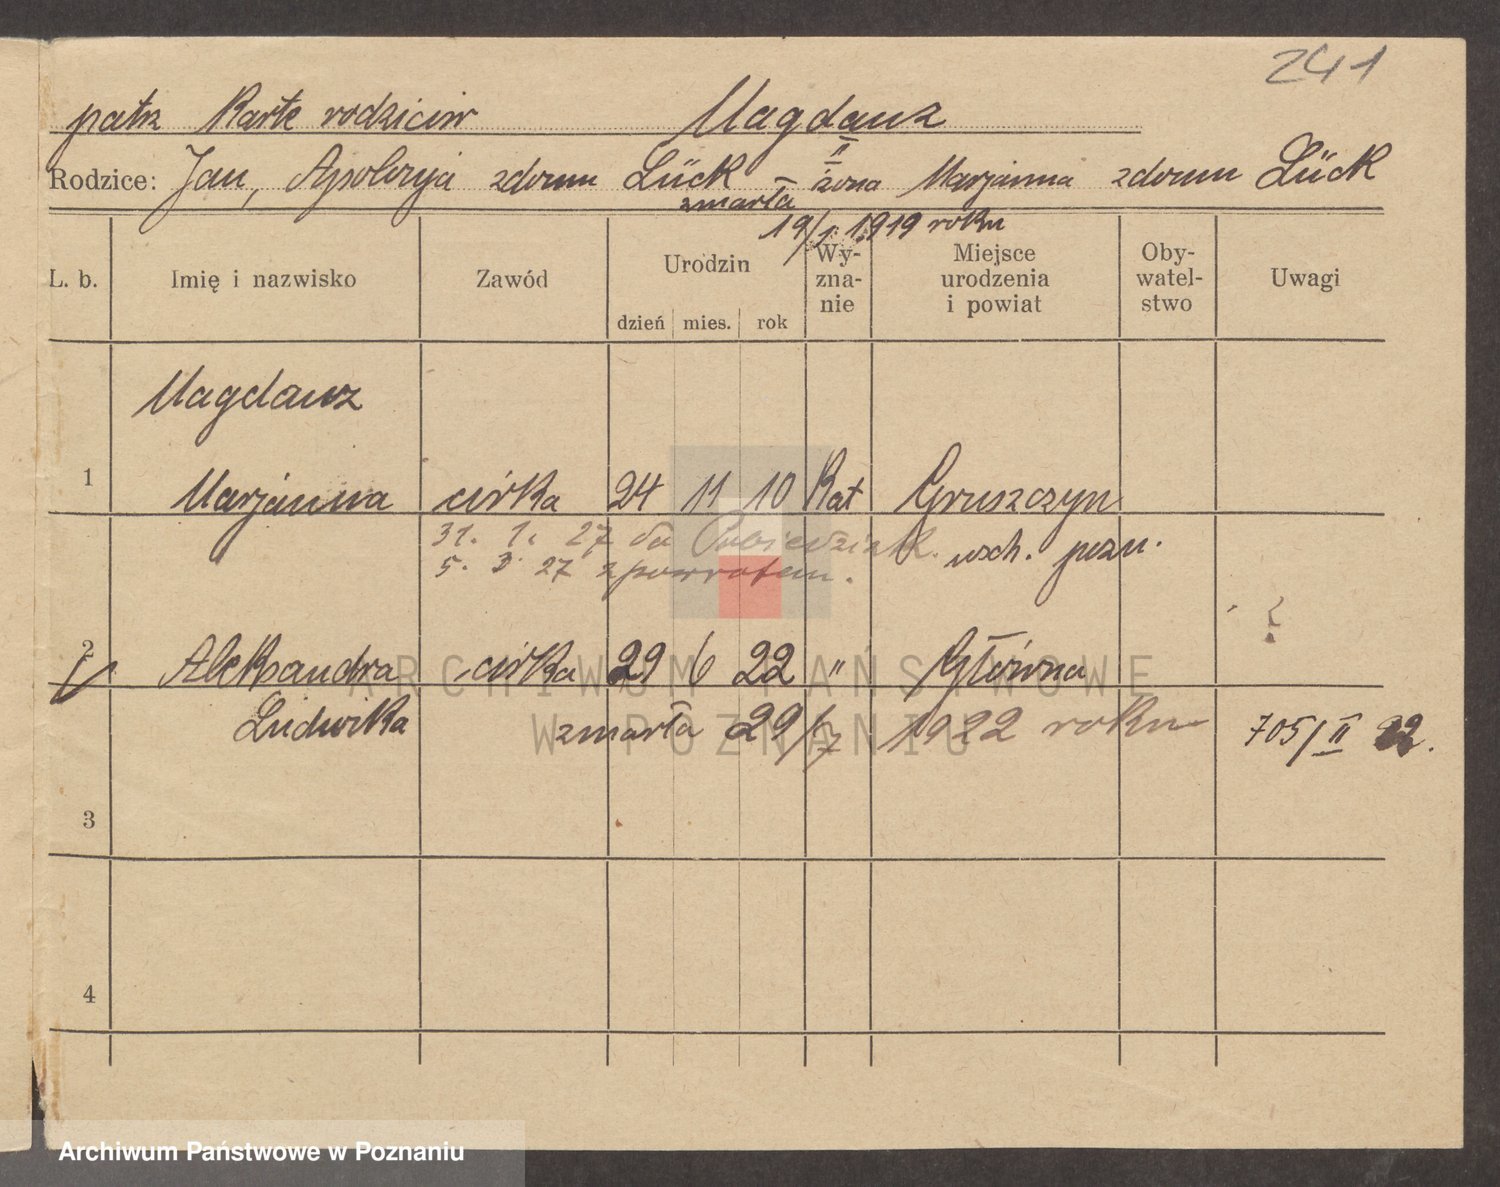 241
patrz Kartę rodziców Magdanz
Rodzice: Jan, Apolonja z domu Lück – II żona Marjanna z domu Lück
zmarła
19/1. 1919 roku
L. b. Imię i nazwisko Zawód Urodzin Wy-zna-nie Miejsce urodzenia i powiat Oby-watel-stwo Uwagi
dzień mies. rok
Magdanz
1 Marjanna córka 24 11 10 Kat Gruszczyn
31. 1. 27 do Pobiedzisk. wsch. pozn.
5. 3. 27 z powrotem.
2 Aleksandra córka 29 6 22 " Główna
Ludwika zmarła 29/7 1922 roku 705/II 22.
3
4
ARCHIWUM PAŃSTWOWE
W POZNANIU
Archiwum Państwowe w Poznaniu